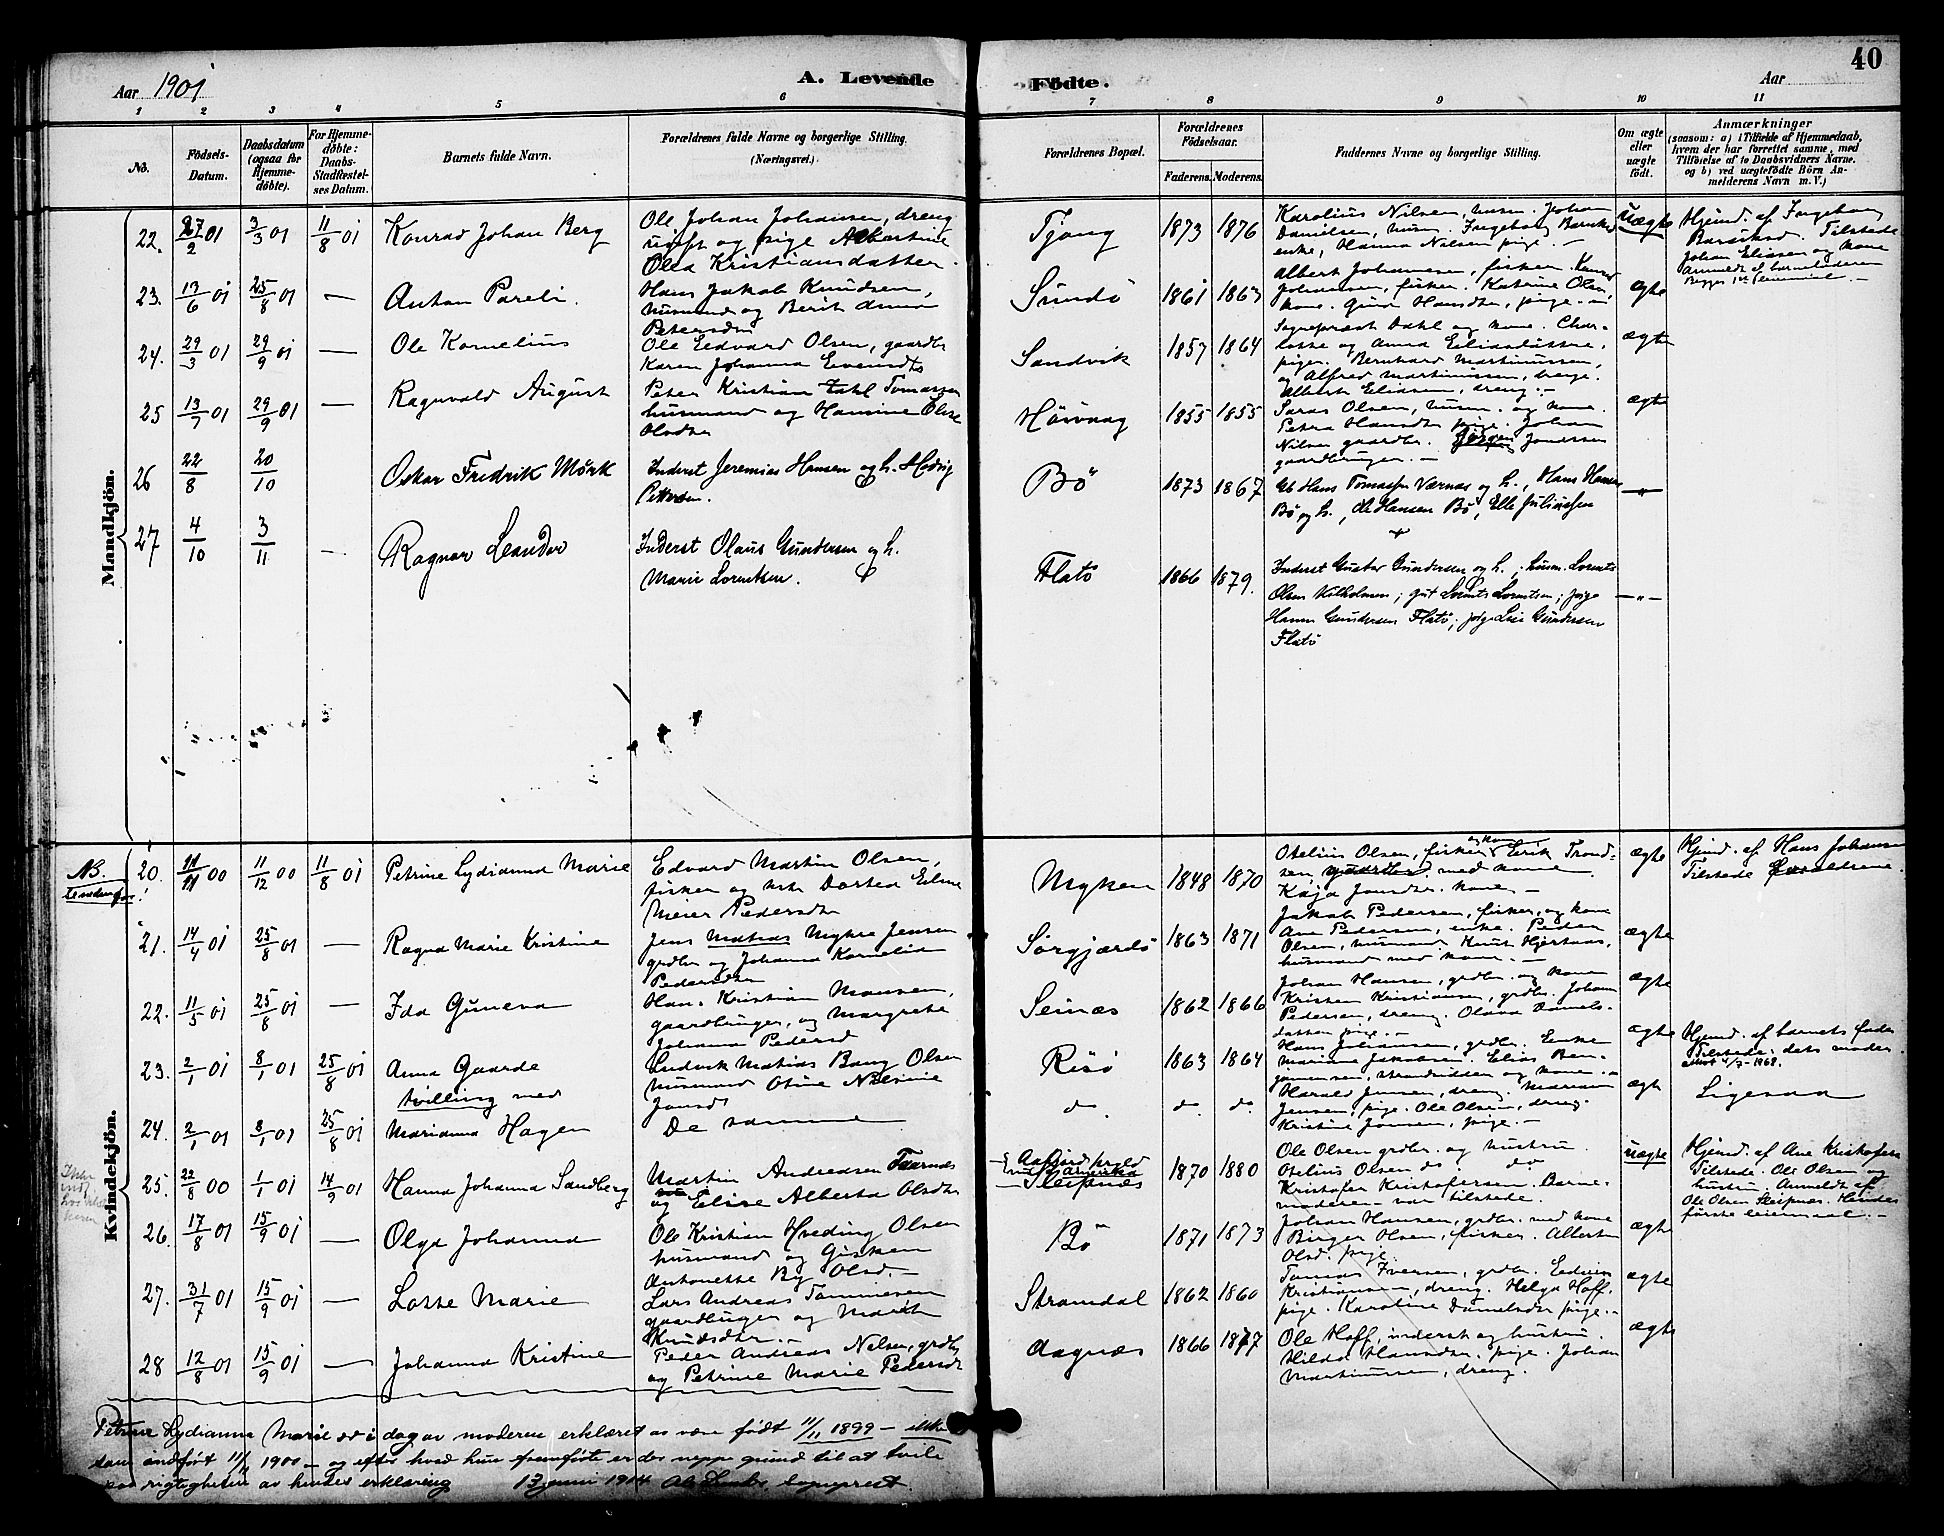 Aar 1901
A. Levende Fødte.
Aar
40
1 2 3 4 5 6 7 8 9 10 11
No.
Fødsels-Datum.
Daabsdatum (ogsaa for Hjemmedøbte).
For Hjemmedøbte: Daabs-Stadfæstelses Datum.
Barnets fulde Navn.
Forældrenes fulde Navne og borgerlige Stilling. (Næringsvei.)
Forældrenes Bopæl.
Forældrenes Fødselsaar.
Faderens. Moderens.
Faddernes Navne og borgerlige Stilling.
Om ægte eller uægte født.
Anmærkninger
(saasom: a) i Tilfælde af Hjemmedaab, hvem der har forrettet samme, med Tilføielse af to Daabsvidners Navne, og b) ved uægtefødte Børn Anmelderens Navn m. V.)
Mandkjøn.
22. 27/2 01 3/3 01 11/8 01 Konrad Johan Berg
Ole Johan Johansen, dreng
ugift og pige Albertine
Olea Kristiansdatter.
Tjong 1873 1876
Karolius Nilsen, husm. Johan
Danielsen, husm. Ingeborg
enke, Hanna Nilsen pige. —
uægte
Hjemd. af Ingeborg
Tilstede
Johan Eliasen og kone
Anmeldt af barnefaderen
Begges 1ste leiermaal. —
23. 13/6 01 25/8 01 — Anton Pareli.
Hans Jakob Knudsen,
husmand og Berit Anna
Petersdtr
Sundö 1861 1863
Albert Johansen, fisker. Konrad
Johansen, fisker. Katrine Olsen
kone. Hansdtr, pige. —
ægte
24. 29/3 01 29/9 01 — Ole Kornelius
Ole Edvard Olsen, gaardbr
Karen Johanna Evensdtr
Sandvik 1857 1864
Sogneprest Dahl og kone. Char-
lotte og Anna Eliasdøttre,
piger. Bernhard Martinussen,
og Alfred Martinussen,
Albert Eliasen, dreng. —
ægte
25 13/7 01 29/9 01 — Ragnvald August
Peter Kristian Dahl Tomassen
husmand og Hansine Olsdtr
Hösvaag 1855 1855
Olsen, husm. og kone.
Petra Hansdtr pige. Johan
Nilsen gaardbr. Jørgen Jonassen
gaardbruger. —
ægte
26 22/8 20/10 Oskar Fredrik Mörk
Inderst Jeremias Hansen og h. Hedvig
Pettersen.
Bö 1873 1867
Gb Hans Tomassen Værnes og h., Hans Hansen
Bö og h., Ole Hansen Bö, Elle Julianssen
— " —
27 4/10 3/11 — Ragnar Leander
Inderst Olaus Gundersen og h.
Marie Lorentsen.
Flatö 1866 1879.
Inderst Gustav Gundersen og h.; husm. Lorents
Olsen Kilholmen; gut Lorents Lorentsen; pige
Hanna Gundersen Flatö; pige Lise Gundersen
Flatö
— " —
Kvindekjøn.
NB.
20. 11/11 00 11/12 00 11/8 01 Petrine Lydianna Marie
Edvard Martin Olsen,
fisker og Dortea Eline
Meier Pedersdtr
Myken 1848 1870
Otelius Olsen, fisker og kone Erik Trond-
sen, gaardbr. med kone
Kaja Jonsdtr. kone. —
ægte
Hjemd. af Hans Johansen
Tilstede forældrene.
21. 14/4 01 25/8 01 — Ragna Marie Kristine
Jens Matias Myhre Jensen
grdbr og Johanna Kornelia
Pedersdtr
Sørgjærdö 1863 1871
Jakob Pedersen, fisker, og kone
Ane Pedersen, enke. Peder
Olsen, husmand. Knut Hjertaas,
husmand med kone. —
ægte
22. 11/5 01 25/8 01 — Ida Guneva
Hans Kristian Monsen,
gaardbruger, og Margrete
Johanna Pedersd
Seinæs 1862 1866
Johan Hansen, grdbr. og kone
Kristen Kristiansen, grdbr. Johan
Pedersen, dreng. Olava Daniels-
datter pige. —
ægte
23. 2/1 01 8/1 01 25/8 01 Anna Gaarde
tvilling med
Ludvik Matias Bang Olsen
husmand Otine Nilsine
Jonsdtr
Resö 1863 1864
Hans Johansen, grdbr. Enke
Mariane Jakobsen. Elias Ben-
jaminsen, strandsidder og kone. —
ægte
Hjemd. af barnets fader
Tilstede: dets moder
24. 2/1 01 8/1 01 25/8 01 Marianna Hagen
De samme
do. do. do.
Harald Jensen, dreng. Mariane
Jensen, pige. Ole Olsen, dreng.
Kristine Jonsen, pige. —
ægte
Ligesaa
25. 22/8 00 1/1 01 14/9 01 Hanna Johanna Sandberg
Martin Andreasen Taarnes
og Elise Alberta Olsdtr
Sleipnæs 1870 1880
Ole Olsen grdbr. og hustru.
Otelius Olsen do. do.
Kristofer Kristofersen. Barne-
moderen var tilstede.
uægte
Hjemd. af Ane Kristofersen
Tilstede. Ole Olsen og
hustru. Anmeldt af
Ole Olsen Sleipnæs. Hendes
første leiermaal. —
26. 17/8 01 15/9 01 — Olga Johanna
Ole Kristian Hveding Olsen
husmand og Gisken
Antonette By Olsd. —
Bö 1871 1873
Johan Hansen, grdbr. med kone
Birger Olsen, fisker. Alberta
Olsd. pige.
ægte
27. 31/7 01 15/9 01 — Lotte Marie
Lars Andreas Tommesen
gaardbruger og Marith
Knudsdtr. —
Stramdal 1862 1860
Tomas Iversen, grdbr. Edvin
Kristiansen, dreng. Helga Hoff,
pige. Karoline Danielsdtr pige. —
ægte
28 12/8 01 15/9 01 — Johanna Kristine
Peder Andreas Nilsen, grdbr
og Petrine Marie Pedersdtr
Aagnæs 1866 1877
Ole Hoff, inderst og hustru.
Hilda Hansdtr. pige. Johan
Martinussen, dreng.
ægte
Petrine Lydianna Marie er i dag av moderen erklæret at være født 11/11 1899 — ikke
som anført 11/11 1900 — og efter hvad hun fremførte er der neppe grund til at tvile
paa rigtigheten av hendes erklæring 13 juni 1914 sogneprest.